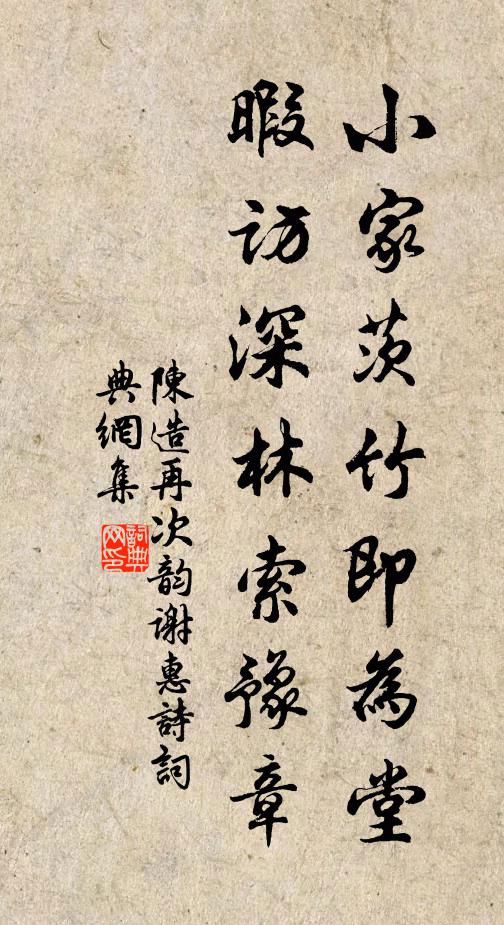 小家茨竹即為堂
暇訪深林索豫章
陳造再次韵谢惠詩詞
典網集
詞典
网印